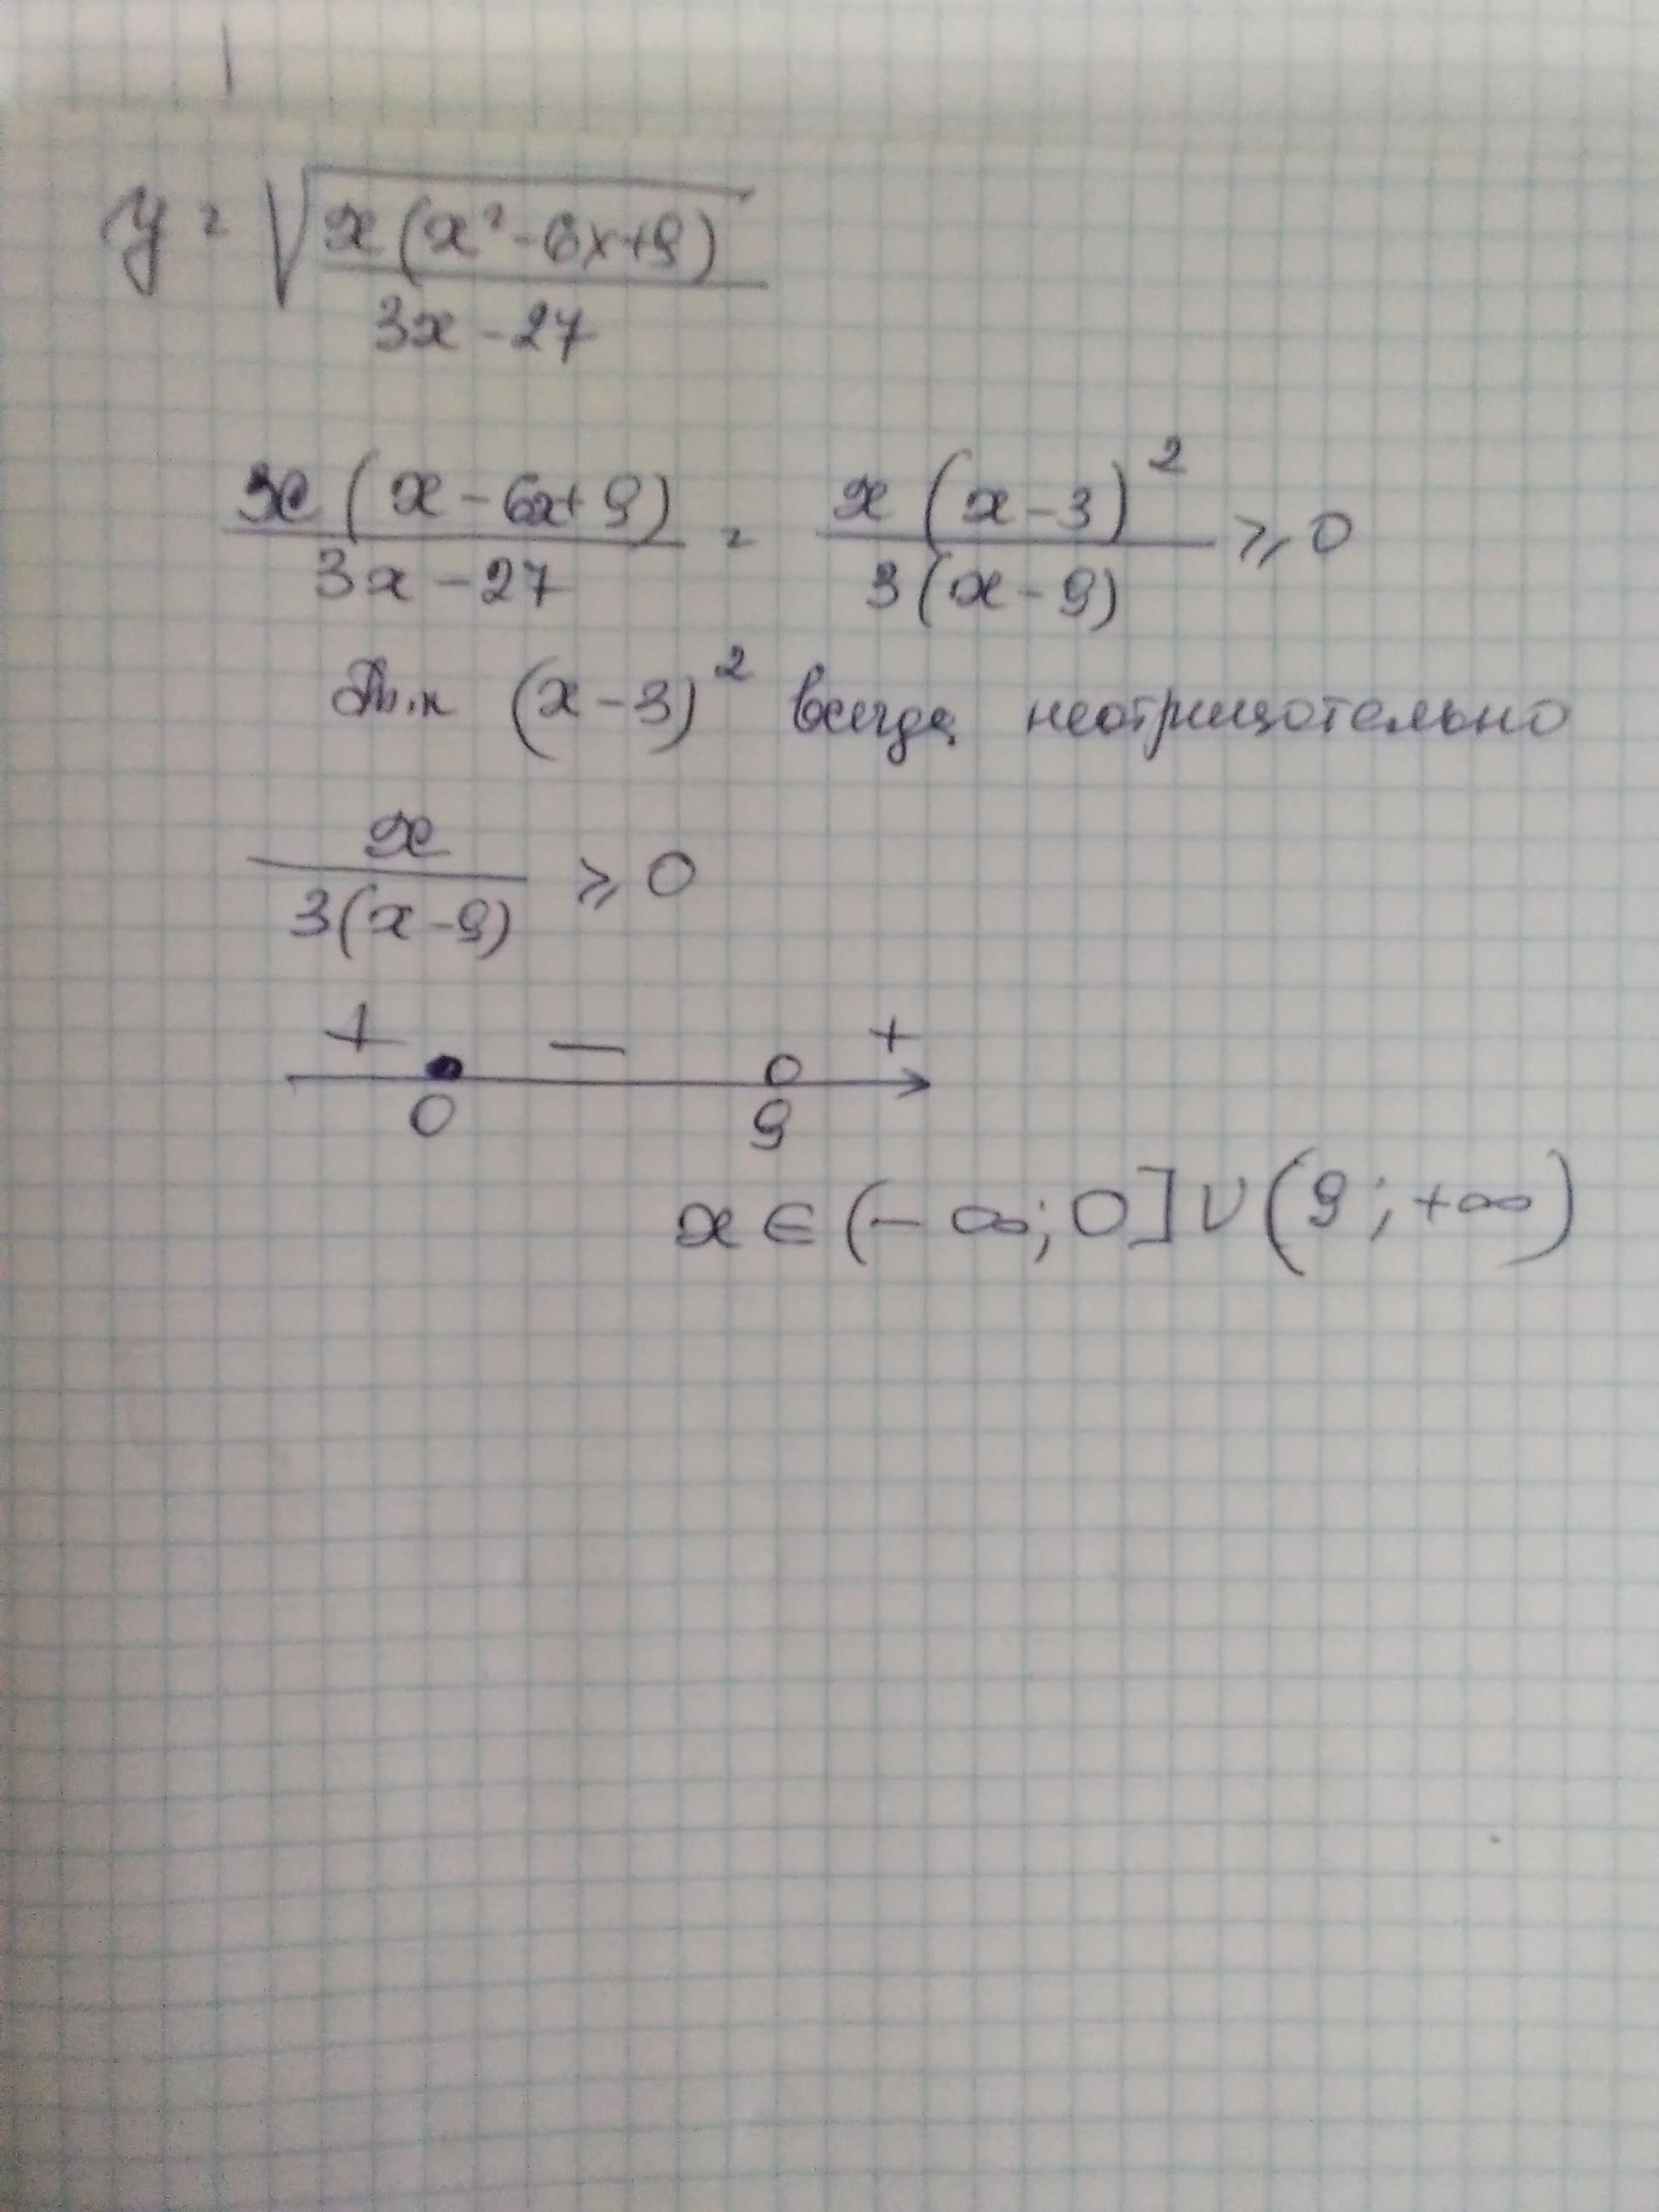 y = √(x(x² - 6x + 9) / (3x - 27))
x(x - 6x + 9) / (3x - 27) = x(x - 3)² / (3(x - 9)) ⩾ 0
Т.к (x - 3)² всегда неотрицательно
x / (3(x - 9)) ⩾ 0
+ — +
0 9
x ∈ (-∞; 0] ∪ (9; +∞)